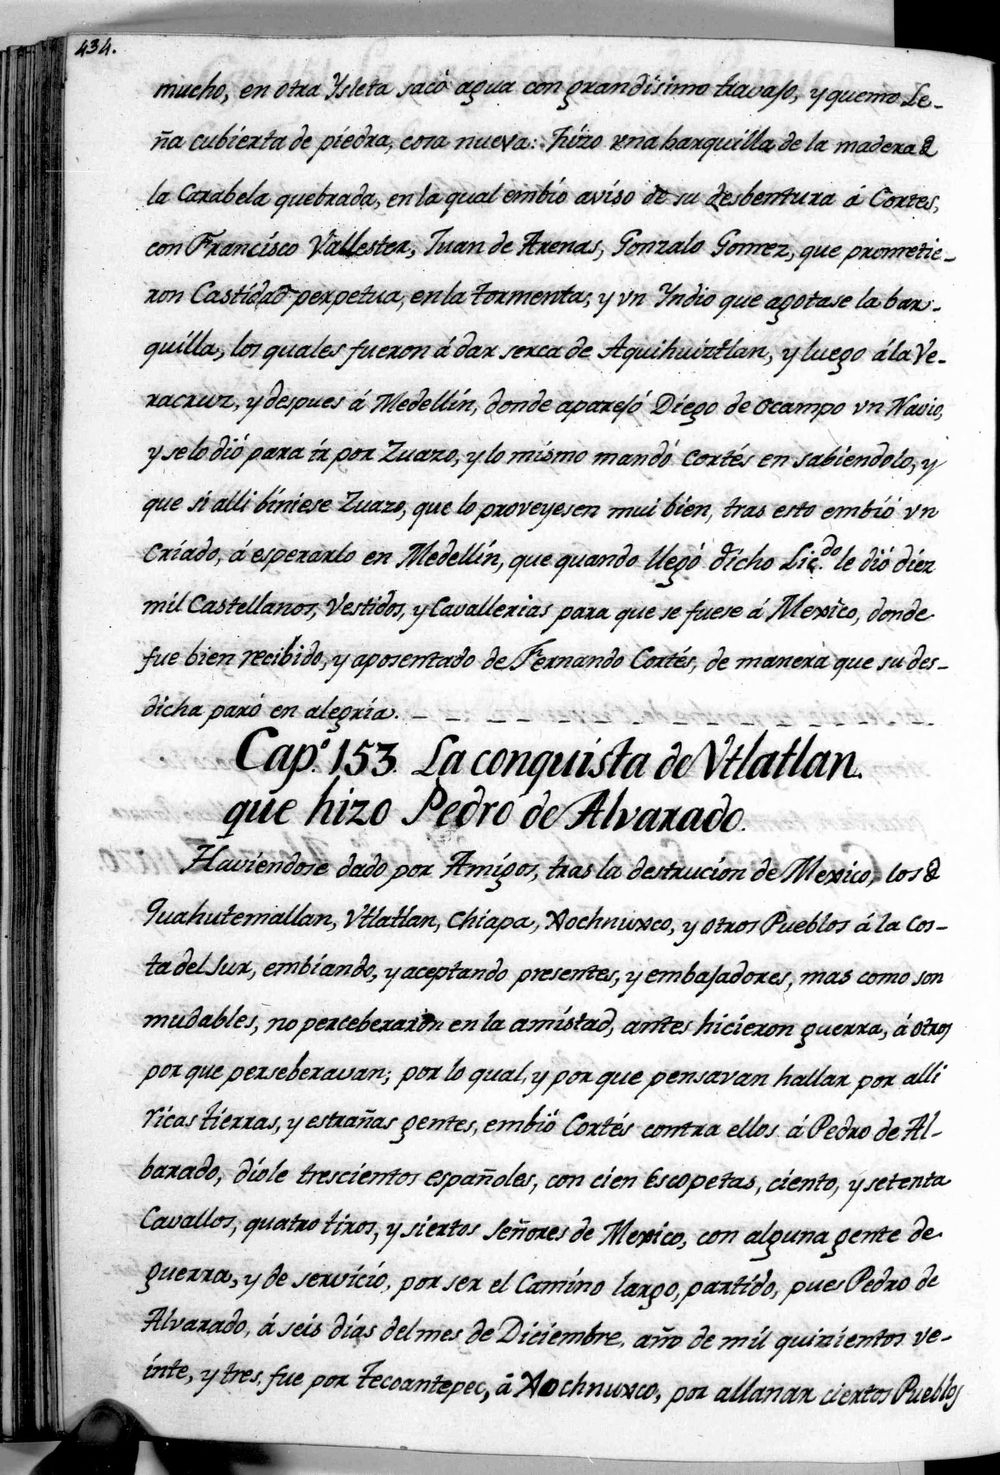 434.
mucho, en otra Ysleta sacó agua con grandísimo travajo, y quemo Le-
ña cubierta de piedra, cosa nueva: hizo vna barquilla de la madera de
la Carabela quebrada, en la qual embío aviso de su desbentura á Cortes,
con Francisco Vallester, Juan de Arenas, Gonzalo Gomez, que prometie-
ron Castidad perpetua, en la tormenta, y vn Yndio que agotase la bar-
quilla, los quales fueron á dar serca de Aquihuiztlan, y luego á la Ve-
racruz, y despues á Medellín, donde aparejó Diego de Ocampo vn Navio,
y se lo dió para ir por Zuazo, y lo mismo mandó Cortés en sabiendolo, y
que si alli biniese Zuazo, que lo proveyesen mui bien, tras esto embió vn
Criado, á esperarlo en Medellín, que quando llegó dicho Lic.do le dió diez
mil Castellanos, Vestidos, y Cavallerias para que se fuese á Mexico, donde
fue bien recibido, y aposentado de Fernando Cortés, de manera que su des-
dicha paró en alegría.
Cap.o 153. La conquista de Vtlatlan.
que hizo Pedro de Alvarado.
Haviendose dado por Amigos, tras la destrucion de Mexico, los de
Quahutemallan, Vtlatlan, Chiapa, Xochnuxco, y otros Pueblos á la Cos-
ta del Sur, embiando, y aceptando presentes, y embajadores, mas como son
mudables, no perceberaron en la amistad, antes hicieron guerra, á otros
por que perseberavan; por lo qual, y por que pensavan hallar por alli
ricas tierras, y estrañas gentes, embió Cortés contra ellos á Pedro de Al-
barado, dióle trescientos españoles, con cien Escopetas, ciento, y setenta
Cavallos, quatro tiros, y siertos señores de Mexico, con alguna gente de
guerra, y de servicio, por ser el Camino largo, partido, pues Pedro de
Alvarado, á seis días del mes de Diciembre, año de mil quinientos ve-
inte, y tres, fue por Tecoantepec, á Xochnuxco, por allanar ciertos Pueblos